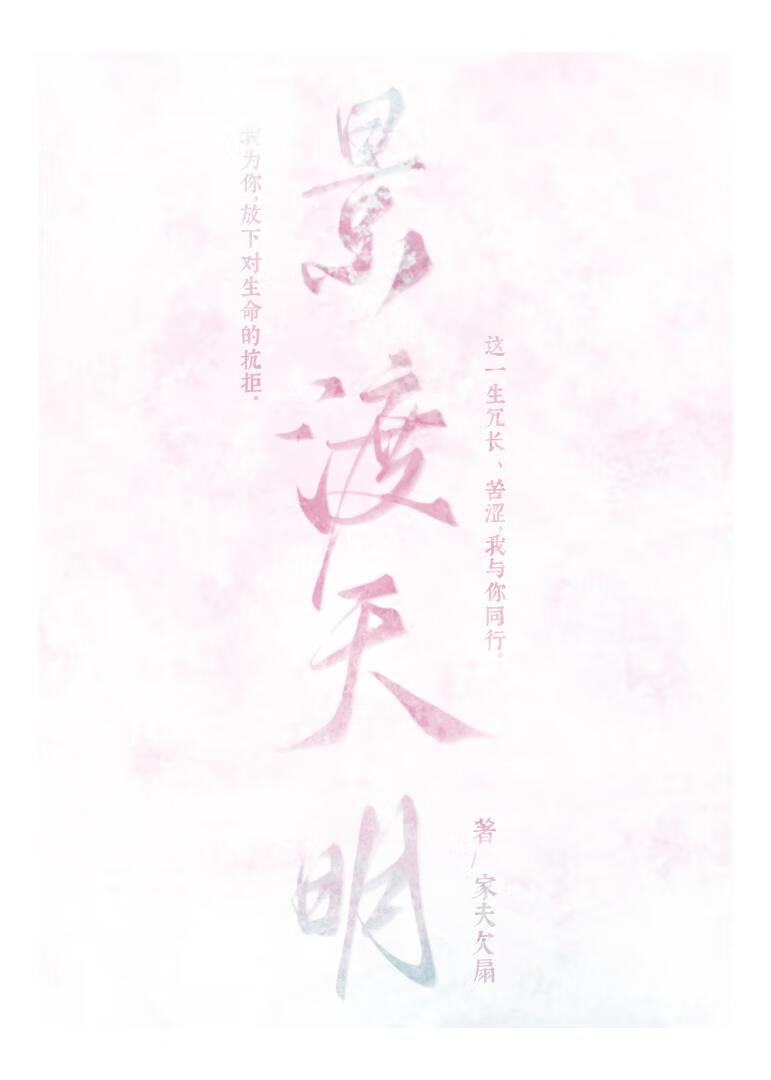 景渡天明
我为你，放下对生命的抗拒。
这一生冗长、苦涩，我与你同行。
著/家夫欠扇